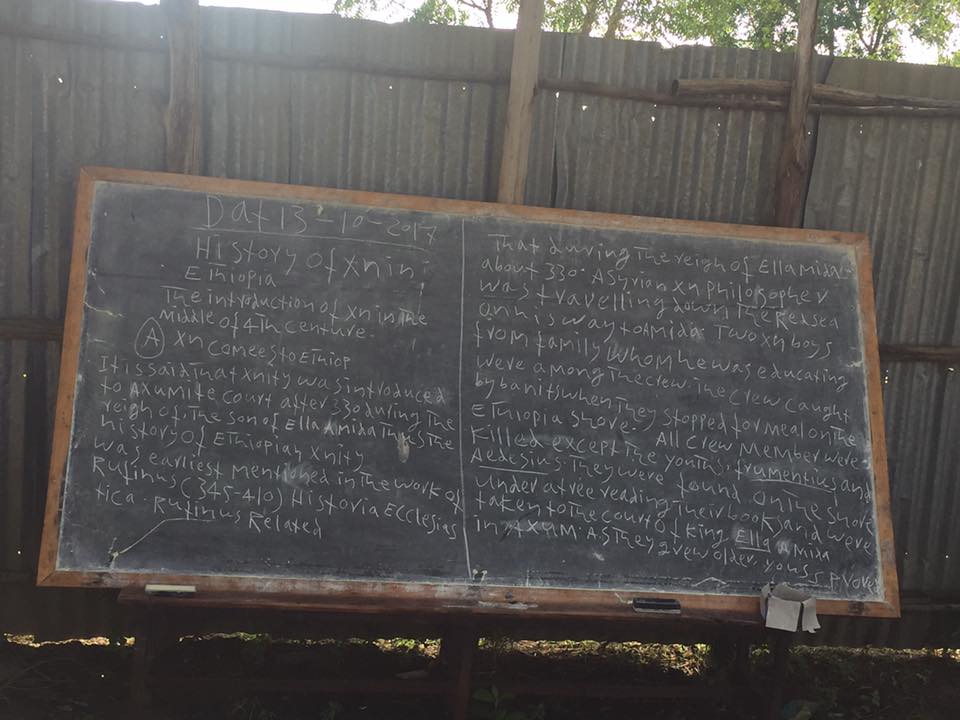 Dat 13-10-2017
History of xn in
Ethiopia
The introduction of xn in the
Middle of 4Th centure.
A xn comees to ETHiop
It is said That xnity was introduced
to Axumite court after 330 during The
reigh of The son of Ella Amida Thus The
history Of ETHiopian xnity
was earliest mentined in The work of
Rufinus (345-410) Historia Ecclesias
tica. Rufinus Related
That during The reigh of Ella mida
about 330. A syrian xn Philosopher
was travelling down The Red sea
on his way to Amida. Two xn boys
from family whom he was educating
were among The crew. The crew caught
by banits when They stopped for meal on The
ETHiopia shore. All crew member were
Killed except The youths. frumentius and
Aedesius. They were found on The shore
under a tree reading Their book and were
taken to The court Of King Ella Amida
in AXUM As They grew older,